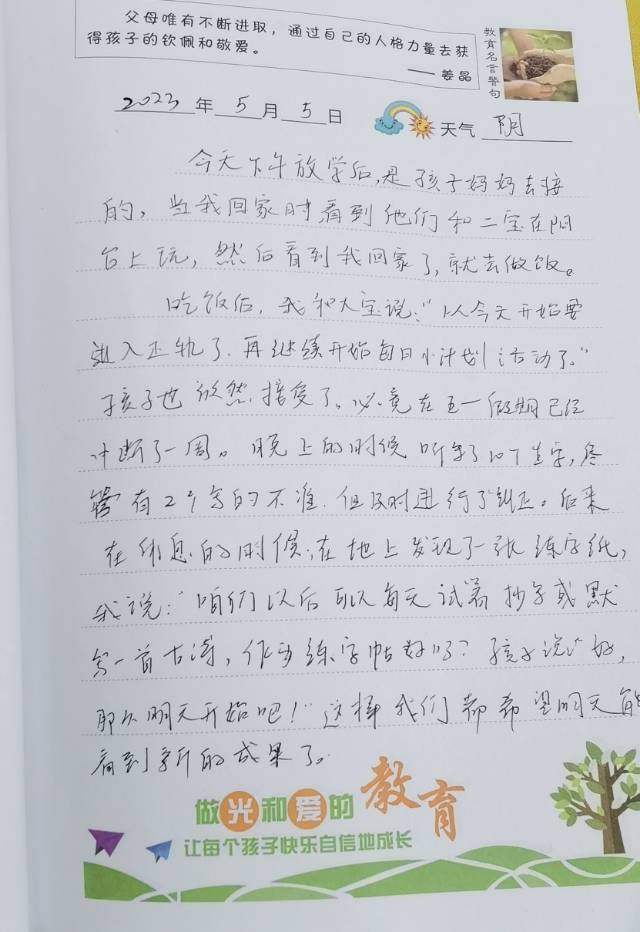 父母唯有不断进取，通过自己的人格力量去获
得孩子的钦佩和敬爱。
——姜晶
教育名言警句
2023年5月5日 天气 阴
今天下午放学后,是孩子妈妈去接
的，当我回家时看到他们和二宝在阳
台上玩，然后看到我回家了,就去做饭。
吃饭后，我和大宝说："从今天开始要
进入正轨了.再继续开始每日小计划活动了."
孩子也欣然接受了。必竟在五一假期已经
冲断了一周。晚上的时候听写了10个生字,尽
管有2个写的不准.但及时进行了纠正。后来
在休息的时候,在地上发现了一张练字纸,
我说："咱们以后可以每天试着抄写或默
写一首古诗，作为练字帖好吗？孩子说"好,
那从明天开始吧！"这样我们都希望明天能
看到新的成果了。
做光和爱的教育
让每个孩子快乐自信地成长